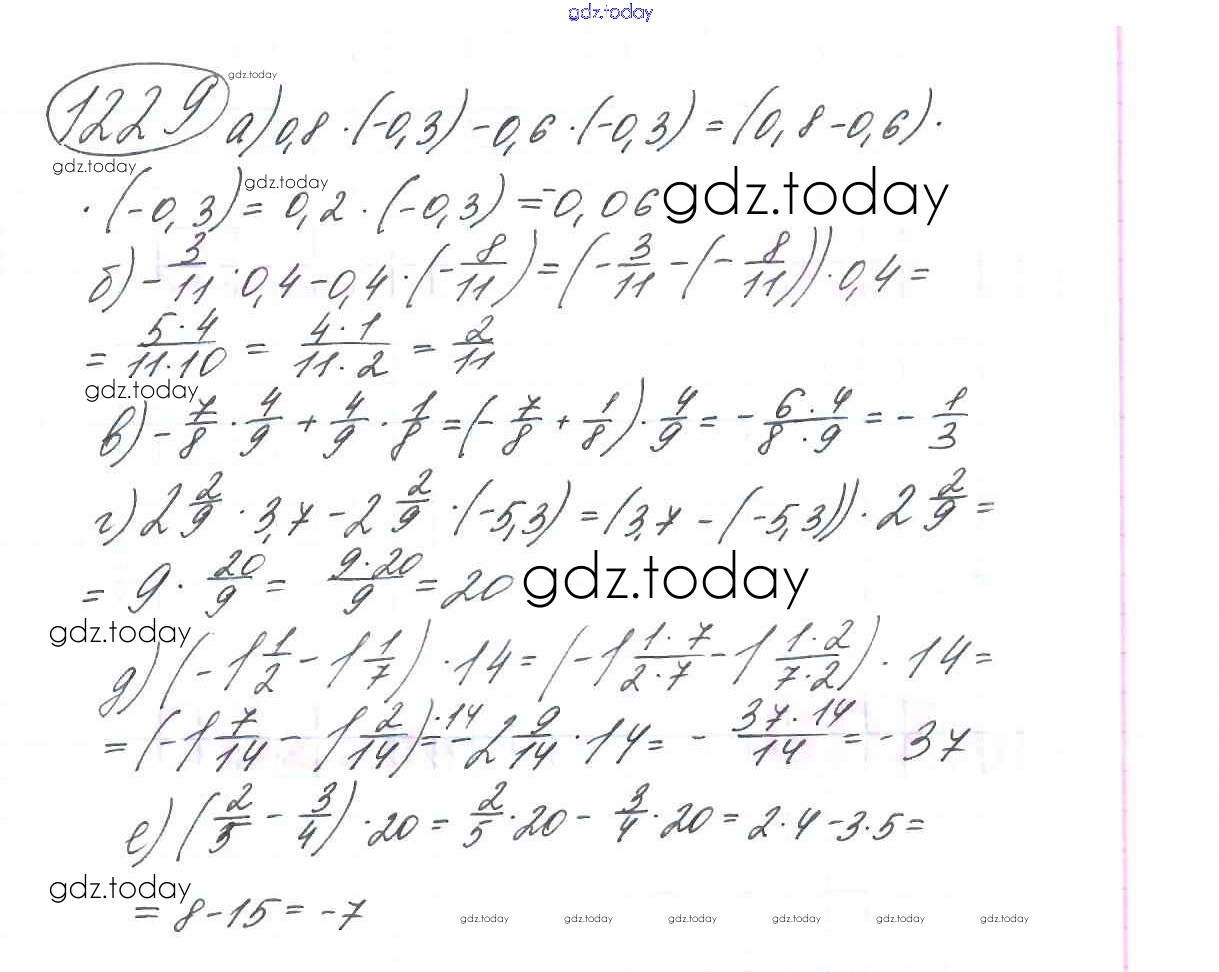 gdz.today
1229 а) 0,8 · (-0,3) - 0,6 · (-0,3) = (0,8 - 0,6) · gdz.today
gdz.today
· (-0,3) = 0,2 · (-0,3) = -0,06 gdz.today gdz.today
б) - 3/11 · 0,4 - 0,4 · (- 8/11) = (- 3/11 - (- 8/11)) · 0,4 =
= 5·4/11·10 = 4·1/11·2 = 2/11
gdz.today
в) - 7/8 · 4/9 + 4/9 · 1/8 = (- 7/8 + 1/8) · 4/9 = - 6·4/8·9 = - 1/3
г) 2 2/9 · 3,7 - 2 2/9 · (-5,3) = (3,7 - (-5,3)) · 2 2/9 =
= 9 · 20/9 = 9·20/9 = 20 gdz.today
gdz.today
д) (-1 1/2 - 1 1/7) · 14 = (-1 1·7/2·7 - 1 1·2/7·2) · 14 =
= (-1 7/14 - 1 2/14) · 14 = -2 9/14 · 14 = - 37·14/14 = - 37
е) (2/5 - 3/4) · 20 = 2/5 · 20 - 3/4 · 20 = 2·4 - 3·5 =
gdz.today
= 8 - 15 = -7
gdz.today gdz.today gdz.today gdz.today gdz.today gdz.today